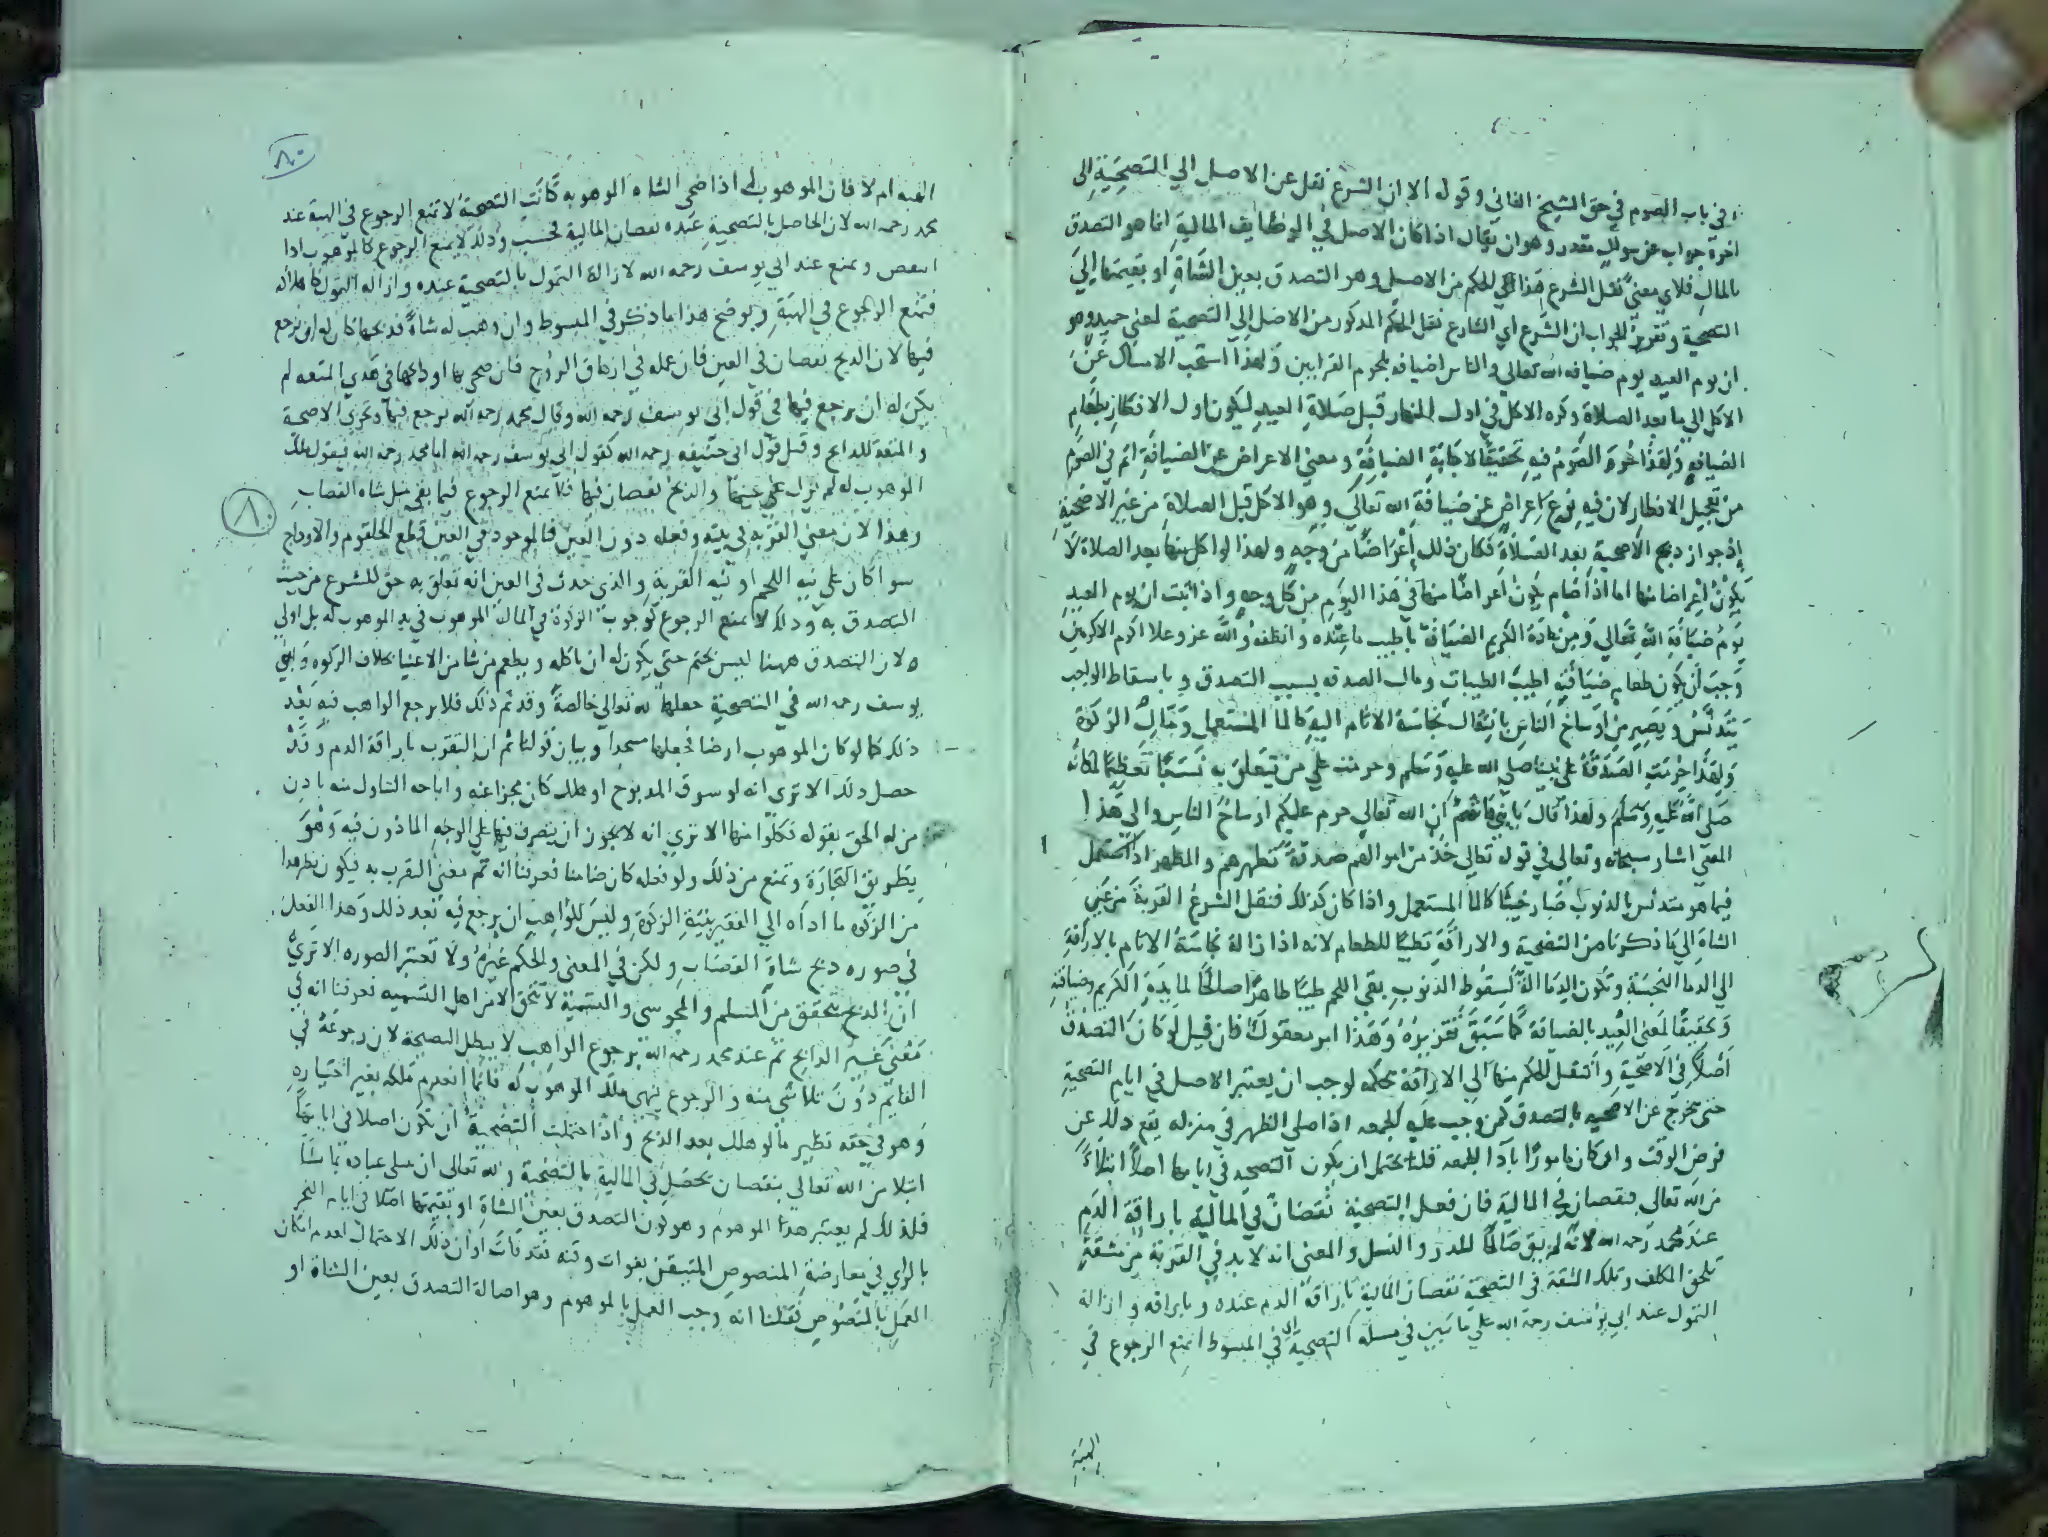 في باب الصوم في حق الشيخ الفاني وقوله الا ان الشرع نقل عن الاصل الي التضحية الى
اخره جواب عن سوال مقدر وهو ان يقال اذا كان الاصل في الوظايف المالية انما هو التصدق
بالمال فلاي معنى نقل الشرع هذا الحكم من الاصل وهو التصدق بعين الشاة او بقيمتها الي
التضحية وتقرير الجواب ان الشرع اي الشارع نقل الحكم المذكور من الاصل الي التضحية لمعنى حميد وهو
ان يوم العيد يوم ضيافة الله تعالي والناس اضيافه بلحوم القرابين ولهذا استحب الامساك عن
الاكل الي ما بعد الصلاة وكره الاكل في اول النهار قبل صلاة العيد ليكون اول الافطار بطعام
الضيافة ولهذا حرم الصوم فيه تحقيقا لاجابة الضيافة ومعنى الاعراض عن الضيافة اتم في الصوم
من تعجيل الافطار لان فيه نوع اعراض عن ضيافة الله تعالي وهو الاكل قبل الصلاة من غير الاضحية
إذ جواز ذبح الاضحية بعد الصلاة فكان ذلك إعراضا من وجه ولهذا لو اكل منها بعد الصلاة لا
يكون إعراضا منها اما اذا صام يكون اعراضا منها في هذا اليوم من كل وجه واذا ثبت ان يوم العيد
يوم ضيافة الله تعالي ومن عادة الكريم الضيافة باطيب ما عنده وانظفه والله عز وعلا اكرم الاكرمين
وجب أن يكون طعام ضيافته اطيب الطيبات ومال الصدقة بسبب التصدق وباسقاط الواجب
يتدنس ويصير من اوساخ الناس بانتقال نجاسة الاثام اليه كالماء المستعمل ومال الزكوة
ولهذا حرمت الصدقة على نبينا صلي الله عليه وسلم وحرمت علي من يتعلق به نسبا تعظيما لمكانه
صلى الله عليه وسلم ولهذا قال يا بني هاشم ان الله تعالي حرم عليكم اوساخ الناس والي هذا
المعنى اشار سبحانه وتعالى في قوله تعالى خذ من اموالهم صدقة تطهرهم والمطهر اذا استعمل
فيما هو متدنس بالذنوب صار خبيثا كالماء المستعمل واذا كان كذلك فنقل الشرع القربة من عين
الشاة الي ما ذكرنا من التضحية والاراقة تطييبا للطعام لانه اذا زالت نجاسة الاثام بالاراقة
الي الدماء النجسة وتكون الدماء الة لسقوط الذنوب بقي اللحم طيبا طاهرا صالحا لمايدة الكريم وضيافته
وتحقيقا لمعنى العيد بالضيافة كما سبق تقريره وهذا امر معقول فان قيل لو كان التصدق
أصلا في الاضحية وانتقل الحكم منها الي الاراقة بحكمه لوجب ان يعتبر الاصل في ايام التضحية
حتى يخرج عن الاضحية بالتصدق كمن وجب عليه الجمعة اذا صلى الظهر في منزله يقع ذلك عن
فرض الوقت وان كان مامورا باداء الجمعة قلنا يحتمل ان يكون التضحية في ايامها اصلا ابتلاء
من الله تعالى بنقصان في المالية فان فعل التضحية نقصان في المالية باراقة الدم
عند محمد رحمه الله لانه لم يبق صالحا للدر والنسل والمعنى انه لا بد في القربة من مشقة
تلحق المكلف وتلك المشقة في التضحية نقصان المالية باراقة الدم عنده وباراقة وازالة
التمول عند ابي يوسف رحمه الله علي ما تبين في مسئلة التضحية في المبسوط ايمنع الرجوع في
الهبة
٨٠
الهبة ام لا فان الموهوب له اذا ضحى الشاة الموهوبة كانت التضحية لا تمنع الرجوع في الهبة عند
محمد رحمه الله لان الحاصل بالتضحية عنده نقصان المالية فحسب وذلك لا يمنع الرجوع كالموهوب اذا
انتقص ويمنع عند ابي يوسف رحمه الله لازالة التمول بالتضحية عنده وازالة التمول
فتمنع الرجوع في الهبة ويوضح هذا ما ذكر في المبسوط وان وهب له شاة فذبحها كان له ان يرجع
فيها لان الذبح نقصان في العين فان عمله في ازهاق الروح فان ضحى بها او ذبحها في هدي المتعة لم
يكن له ان يرجع فيها في قول ابي يوسف رحمه الله وقال محمد رحمه الله يرجع فيها وتجزي الاضحية
والمتعة للذابح وقيل قول ابي حنيفة رحمه الله كقول ابي يوسف رحمه الله اما محمد رحمه الله فيقول ملك
الموهوب له لم يزل عن عينها والذبح نقصان فيها فلا يمنع الرجوع فيما بقي مثل شاة القصاب
وهذا لان معنى القربة في نيته وفعله دون العين فالموجود في العين قطع الحلقوم والاوداج
٨٠
سوا كان على نية اللحم او نية القربة والذي حدث في العين انه تعلق به حق للشرع من حيث
التصدق به وذلك لا يمنع الرجوع كوجوب الزكوة في المال الموهوب في يد الموهوب له بل اولى
لان التصدق ههنا ليس بحتم حتى يكون له ان ياكله ويطعم من شا من الاغنيا بخلاف الزكوة وابي
يوسف رحمه الله في التضحية جعلها لله تعالي خالصة وقد تم ذلك فلا يرجع الواهب فيه بعد
ذلك كما لو كان الموهوب ارضا فجعلها مسجدا وبيان قولنا تم ان التقرب باراقة الدم وقد
حصل ذلك الا ترى انه لو سرق المذبوح او هلك كان مجزا عنه واباحة التناول منه باذن
من له الحق بقوله فكلوا منها الا تري انه لا يجوز ان يتصرف فيها علي الوجه الماذون فيه وهو
بطريق التجارة ويمنع من ذلك ولو فعله كان ضامنا فعرفنا انه تم معنى التقرب به فيكون نظير هذا
من الزكوة ما اداه الي الفقير بنية الزكوة وليس للواهب ان يرجع فيه بعد ذلك وهذا الفعل
في صورة ذبح شاة القصاب ولكن في المعنى والحكم غيره ولا تعتبر الصورة الا تري
ان الذبح يتحقق من المسلم والمجوسى والتسمية لا تتحقق الا من اهل التسمية فعرفنا انه في
معنى غير الذابح ثم عند محمد رحمه الله برجوع الواهب لا يبطل التضحية لان رجوعه في
القايم دون ما تلاشى منه والرجوع ينهى ملك الموهوب له فانما انعدم ملكه بغير اختياره
وهو في حقه نظير ما لو هلك بعد الذبح واذا احتملت التضحية ان تكون اصلا في ايامها
ابتلا من الله تعالي بنقصان يحصل في المالية بالتضحية ولله تعالى ان يبتلي عباده بما شا
فلذلك لم يعتبر هذا الموهوم وهو كون التصدق بعين الشاة او بقيمتها اصلا في ايام النحر
بالراي في معارضة المنصوص المتيقن بفوات وقته فقد فات او ان ذلك الاحتمال لعدم امكان
العمل بالمنصوص فقلنا انه وجب العمل بالموهوم وهو اصالة التصدق بعين الشاة او